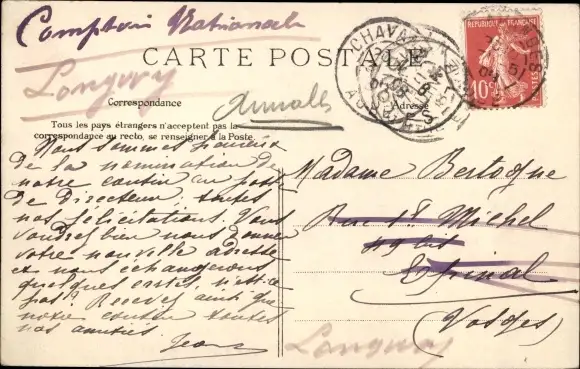 Comptoir National
CARTE POSTALE
Longwy
RÉPUBLIQUE FRANÇAISE
10
CHAVA
AUBE
Correspondance
Annalls
Adresse
Tous les pays étrangers n'acceptent pas la
correspondance au recto, se renseigner à la Poste.
Nous sommes heureux
de la nomination de
notre cousin au poste
de Directeur, toutes
nos félicitations. Vous
voudrez bien nous donner
votre nouvelle adresse
et nous échangerons
quelques cartes, n'est-ce
pas? Recevez ainsi que
notre cousin toutes
nos amitiés.
Jeanne
Madame Bertogne
Rue St. Michel
49 bis
Epinal
(Vosges)
Longwy